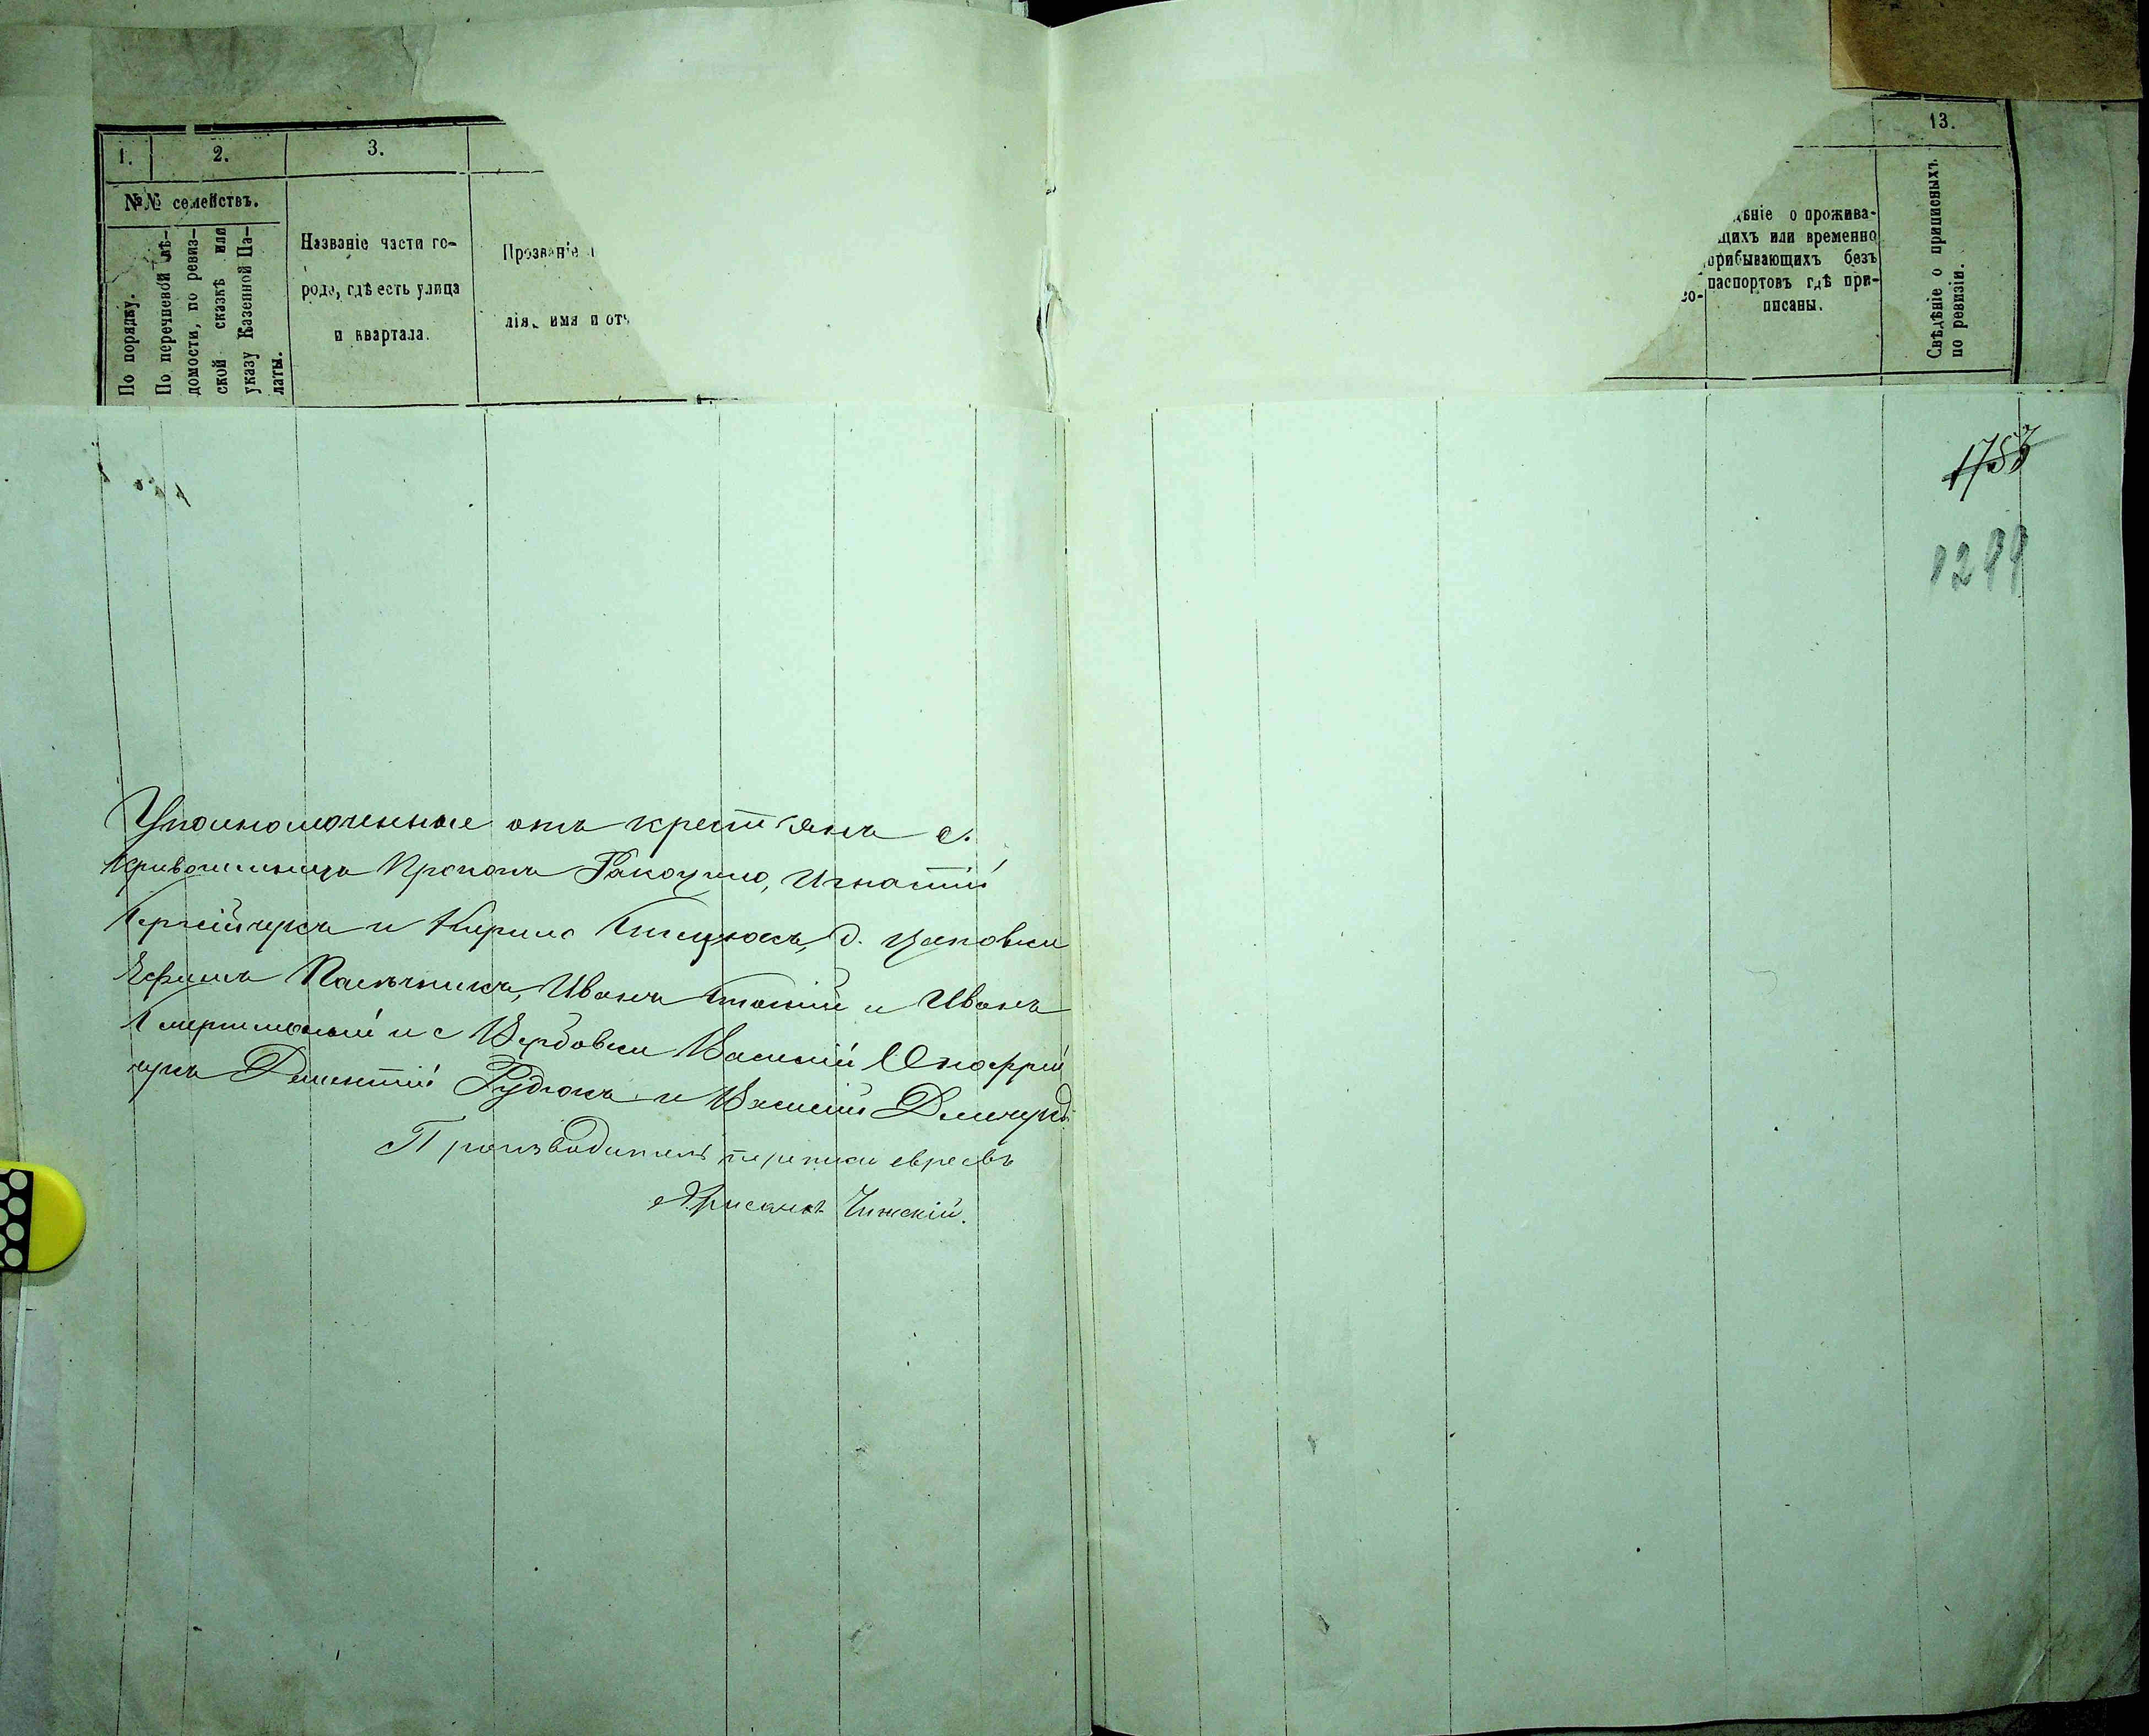 1.
2.
3.
№№ семействъ.
По порядку.
По перечневой вѣ-
домости, по ревиз-
ской сказкѣ или
указу Казенной Па-
латы.
Названіе части го-
рода, гдѣ есть улица
и квартала.
Прозваніе
лія, имя и отч
13.
дѣніе о прожива-
щихъ или временно
прибывающихъ безъ
паспортовъ гдѣ при-
писаны.
со-
Свѣдѣніе о приписныхъ
по ревизіи.
1753
1299
Уполномоченные отъ крестьянъ с.
Кривошеинецъ Прокопъ Ракочило, Игнатій
Сергейчукъ и Кирило д. Чеповки
Ефимъ Пасѣчникъ, Иванъ и Иванъ
и с Вербовки Василій Онофрій
чукъ Дементій Рудюкъ и Василій Демчукъ
Производитель переписи евреевъ
Чижскій.